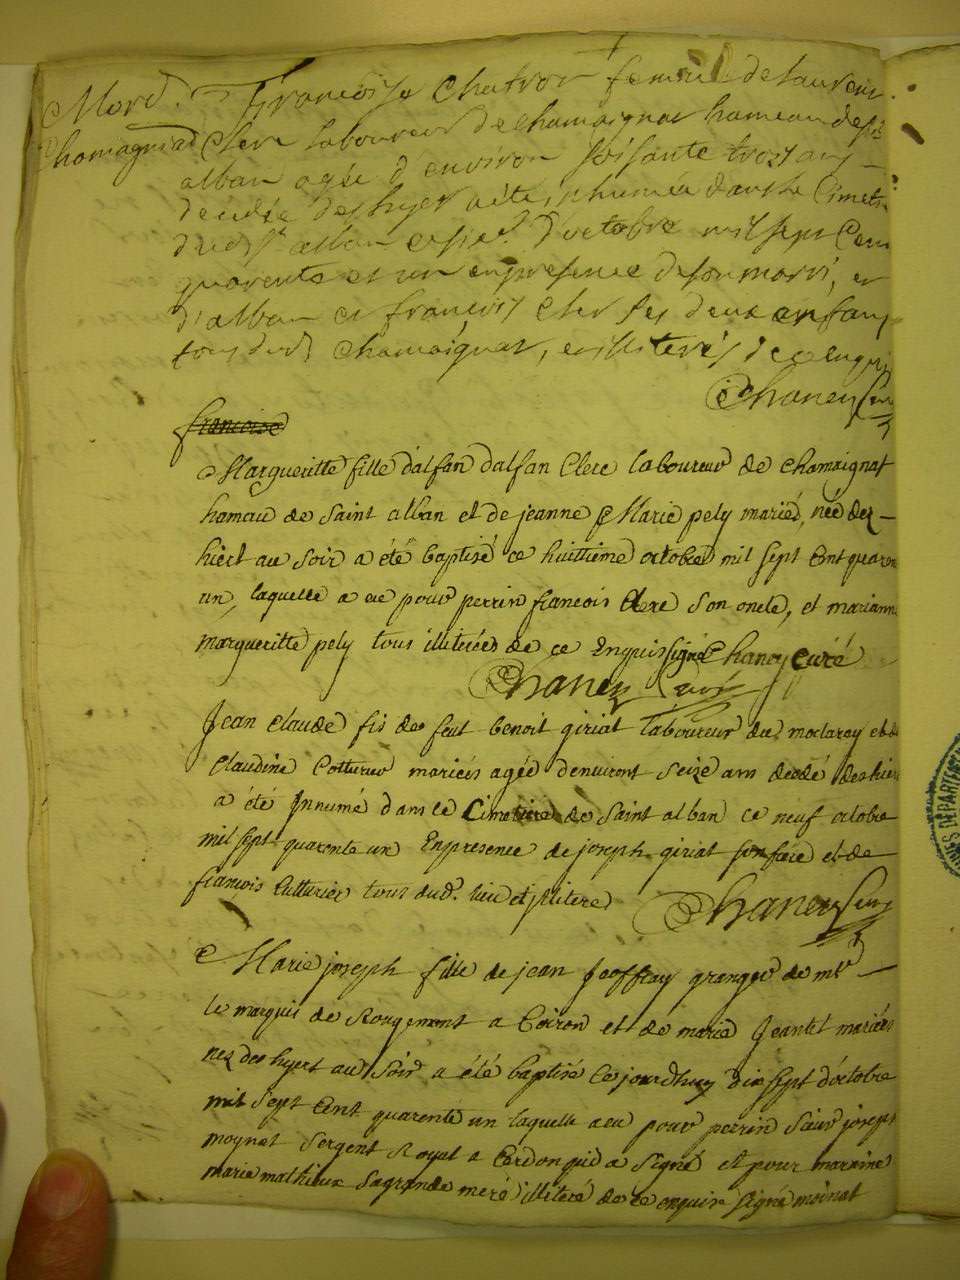 Mord. Francoise Chatron femme de Laurent
Chamagniad Clerc laboureur de chamaignat hameau de st
alban agée d'environ soisante troz ans
decédée des hyer a été inhumée dans le Cimeti
dud st alban ce six d'octobre mil sept Cent
quarente et un en presence de son marri, et
d'alban et francois Cler ses deux enfans
tous dud Chamaignat, illiterés de ce enquis
Chaney Curé
francoise
Margueritte fille d'alfan dalfan Clerc laboureur de Chamaignat
hamau de Saint alban et de jeanne Marie pely mariés, née der
hiert au soir a été baptisé ce huittieme octobre mil sept Cent quaren
un, laquelle a eu pour perrin francois Clerc son oncle, et marianne
margueritte pely tous illiterées de ce Enquis signé Chaney curé
Chaney Curé
Jean Claude fis de feut benoit giriat laboureur du moclarey et de
Claudine Cotturier mariés agée denviront seize ans decdé deshier
a été Innumé dans le Cimetiere de Saint alban ce neuf octobre
mil sept quarente un En presence de joseph giriat son frere et de
francois Cutturier tous dud. lieu et jlitere
Chaney Curé
Marie joseph fille de jean Jeoffray granger de mr
le marquis de Rougemont a Coiron et de marie Jeantet mariées
nez des hyert au Soir a été baptisé Ce jourdhuy dix sept d'octobre
mil sept Cent quarente un laquelle a eu pour perrin Sieur joseph
moynat sergent Royal a Cerdon qui a signé et pour maraine
marie mathieux sa grande meré illiteré de ce enquise signé moinat